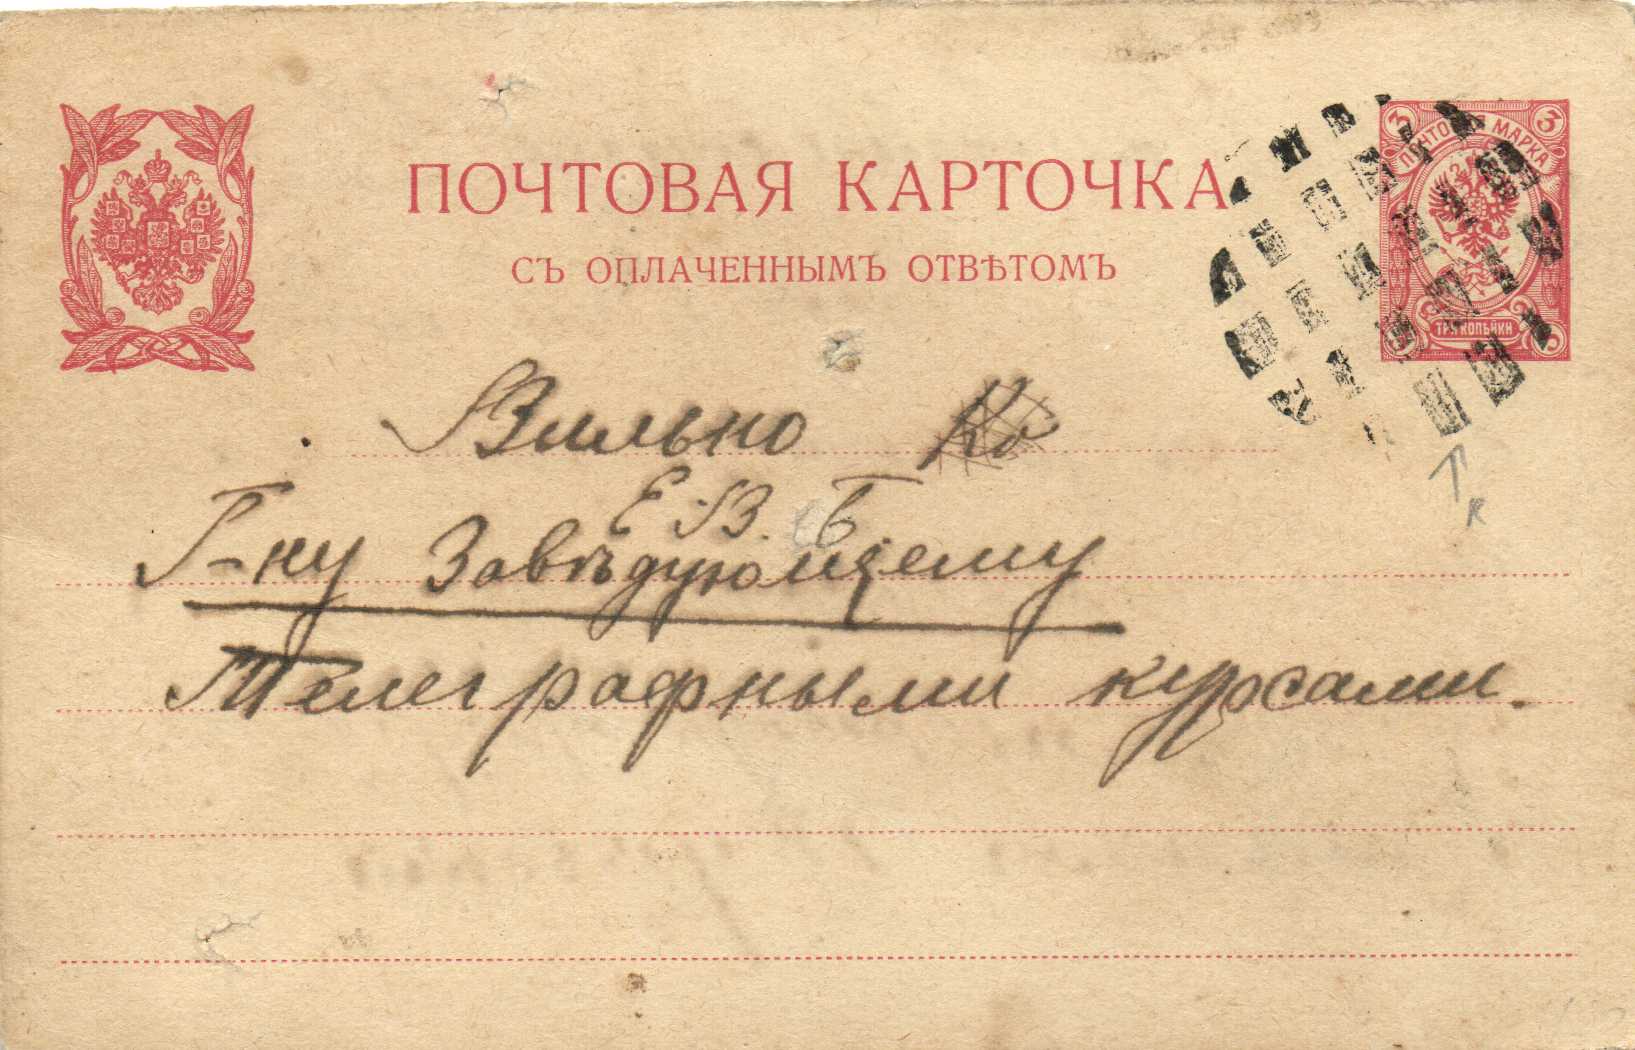 ПОЧТОВАЯ КАРТОЧКА
СЪ ОПЛАЧЕННЫМЪ ОТВѢТОМЪ
3 ПОЧТОВ МАРКА 3
ТРИ КОПѢЙКИ
Вильно
Е. В. Б
Г-ну Завѣдующему
Телеграфными курсами.